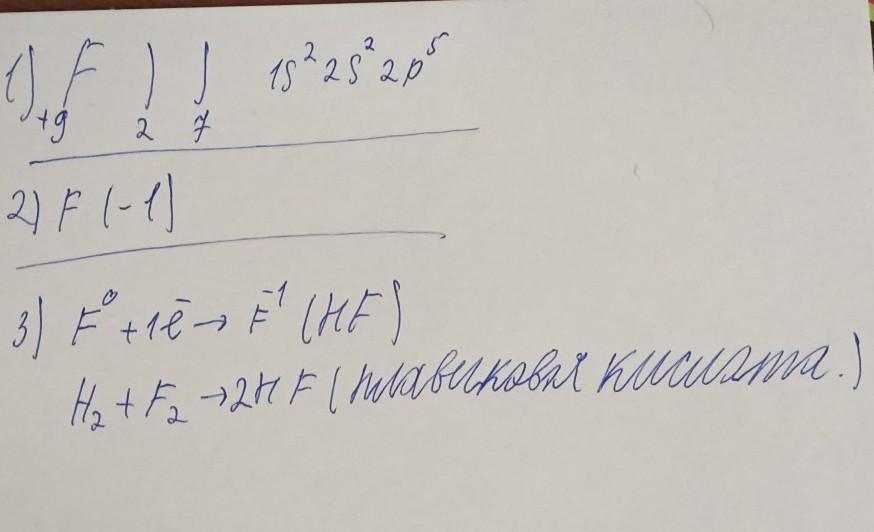 1) F ) ) 1s² 2s² 2p⁵
+9 2 7
2) F (-1)
3) F⁰ + 1ē → F⁻¹ (HF)
H₂ + F₂ → 2HF (плавиковая кислота.)